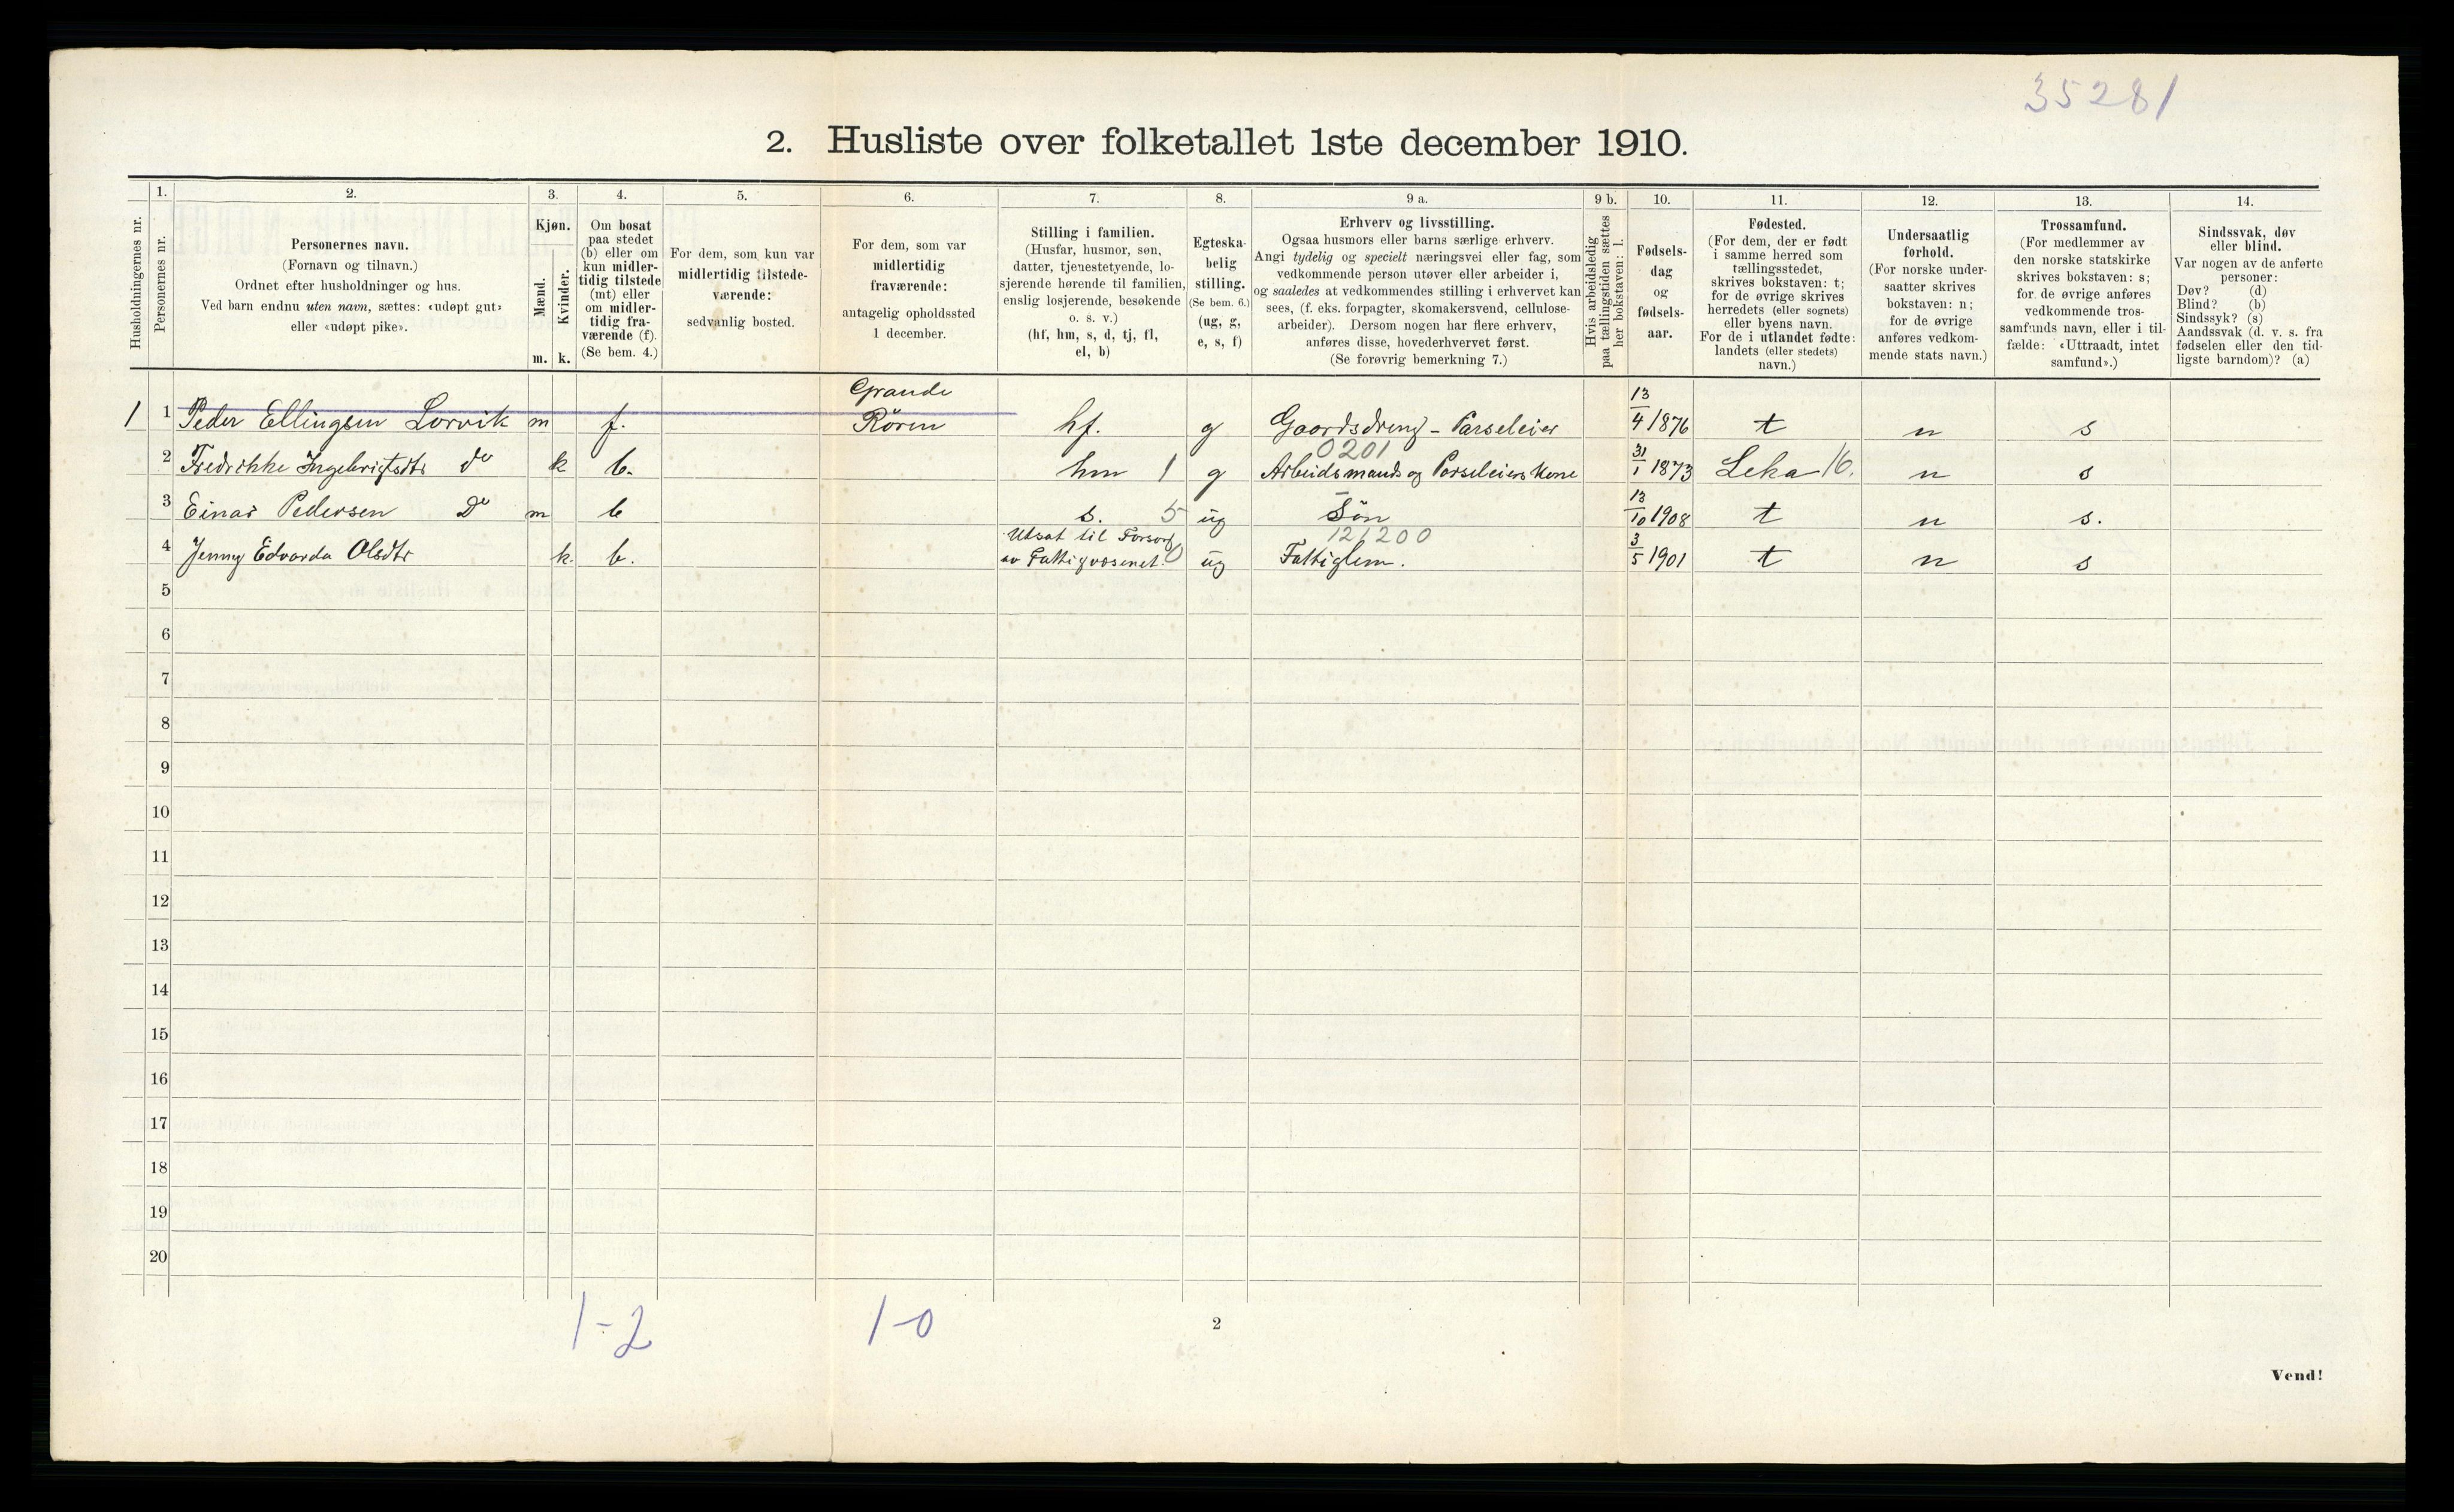 35281
2. Husliste over folketallet 1ste december 1910.
Husholdningernes nr.
1.
Personernes nr.
2.
Personernes navn.
(Fornavn og tilnavn.)
Ordnet efter husholdninger og hus.
Ved barn endnu uten navn, sættes: «udøpt gut»
eller «udøpt pike».
3.
Kjøn.
Mænd.
Kvinder.
m. k.
4.
Om bosat
paa stedet
(b) eller om
kun midler-
tidig tilstede
(mt) eller
om midler-
tidig fra-
værende (f).
(Se bem. 4.)
5.
For dem, som kun var
midlertidig tilstede-
værende:
sedvanlig bosted.
6.
For dem, som var
midlertidig
fraværende:
antagelig opholdssted
1 december.
7.
Stilling i familien.
(Husfar, husmor, søn,
datter, tjenestetyende, lo-
sjerende hørende til familien,
enslig losjerende, besøkende
o. s. v.)
(hf, hm, s, d, tj, fl,
el, b)
8.
Egteska-
belig
stilling.
(Se bem. 6.)
(ug, g,
e, s, f)
9 a.
Erhverv og livsstilling.
Ogsaa husmors eller barns særlige erhverv.
Angi tydelig og specielt næringsvei eller fag, som
vedkommende person utøver eller arbeider i,
og saaledes at vedkommendes stilling i erhvervet kan
sees, (f. eks. forpagter, skomakersvend, cellulose-
arbeider). Dersom nogen har flere erhverv,
anføres disse, hovederhvervet først.
(Se forøvrig bemerkning 7.)
9 b.
Hvis arbeidsledig
paa tællingstiden sættes
her bokstaven: l.
10.
Fødsels-
dag
og
fødsels-
aar.
11.
Fødested.
(For dem, der er født
i samme herred som
tællingsstedet,
skrives bokstaven: t;
for de øvrige skrives
herredets (eller sognets)
eller byens navn.
For de i utlandet fødte:
landets (eller stedets)
navn.)
12.
Undersaatlig
forhold.
(For norske under-
saatter skrives
bokstaven: n;
for de øvrige
anføres vedkom-
mende stats navn.)
13.
Trossamfund.
(For medlemmer av
den norske statskirke
skrives bokstaven: s;
for de øvrige anføres
vedkommende tros-
samfunds navn, eller i til-
fælde: «Uttraadt, intet
samfund».)
14.
Sindssvak, døv
eller blind.
Var nogen av de anførte
personer:
Døv? (d)
Blind? (b)
Sindssyk? (s)
Aandssvak (d. v. s. fra
fødselen eller den tid-
ligste barndom)? (a)
1 1 Peder Ellingsen Lorvik m f. Grande
Røren hf. g Gaardsdreng - Parseleier 13/4 1876 t n s
0201
2 Fredrikke Ingebrigtsdtr do k b. hm 1 g Arbeidsmands og Parseleiers Kone 31/1 1873 Leka 16. n s
3 Einar Pedersen Do m b s. 5 ug Søn 13/10 1908 t n s.
121200
4 Jenny Edvarda Olsdtr k. b. Utsat til Forsorg
av Fattigvæsenet. 0 ug Fattiglem. 3/5 1901 t n s
5
6
7
8
9
10
11
12
13
14
15
16
17
18
19
20
1-2
1-0
2
Vend!